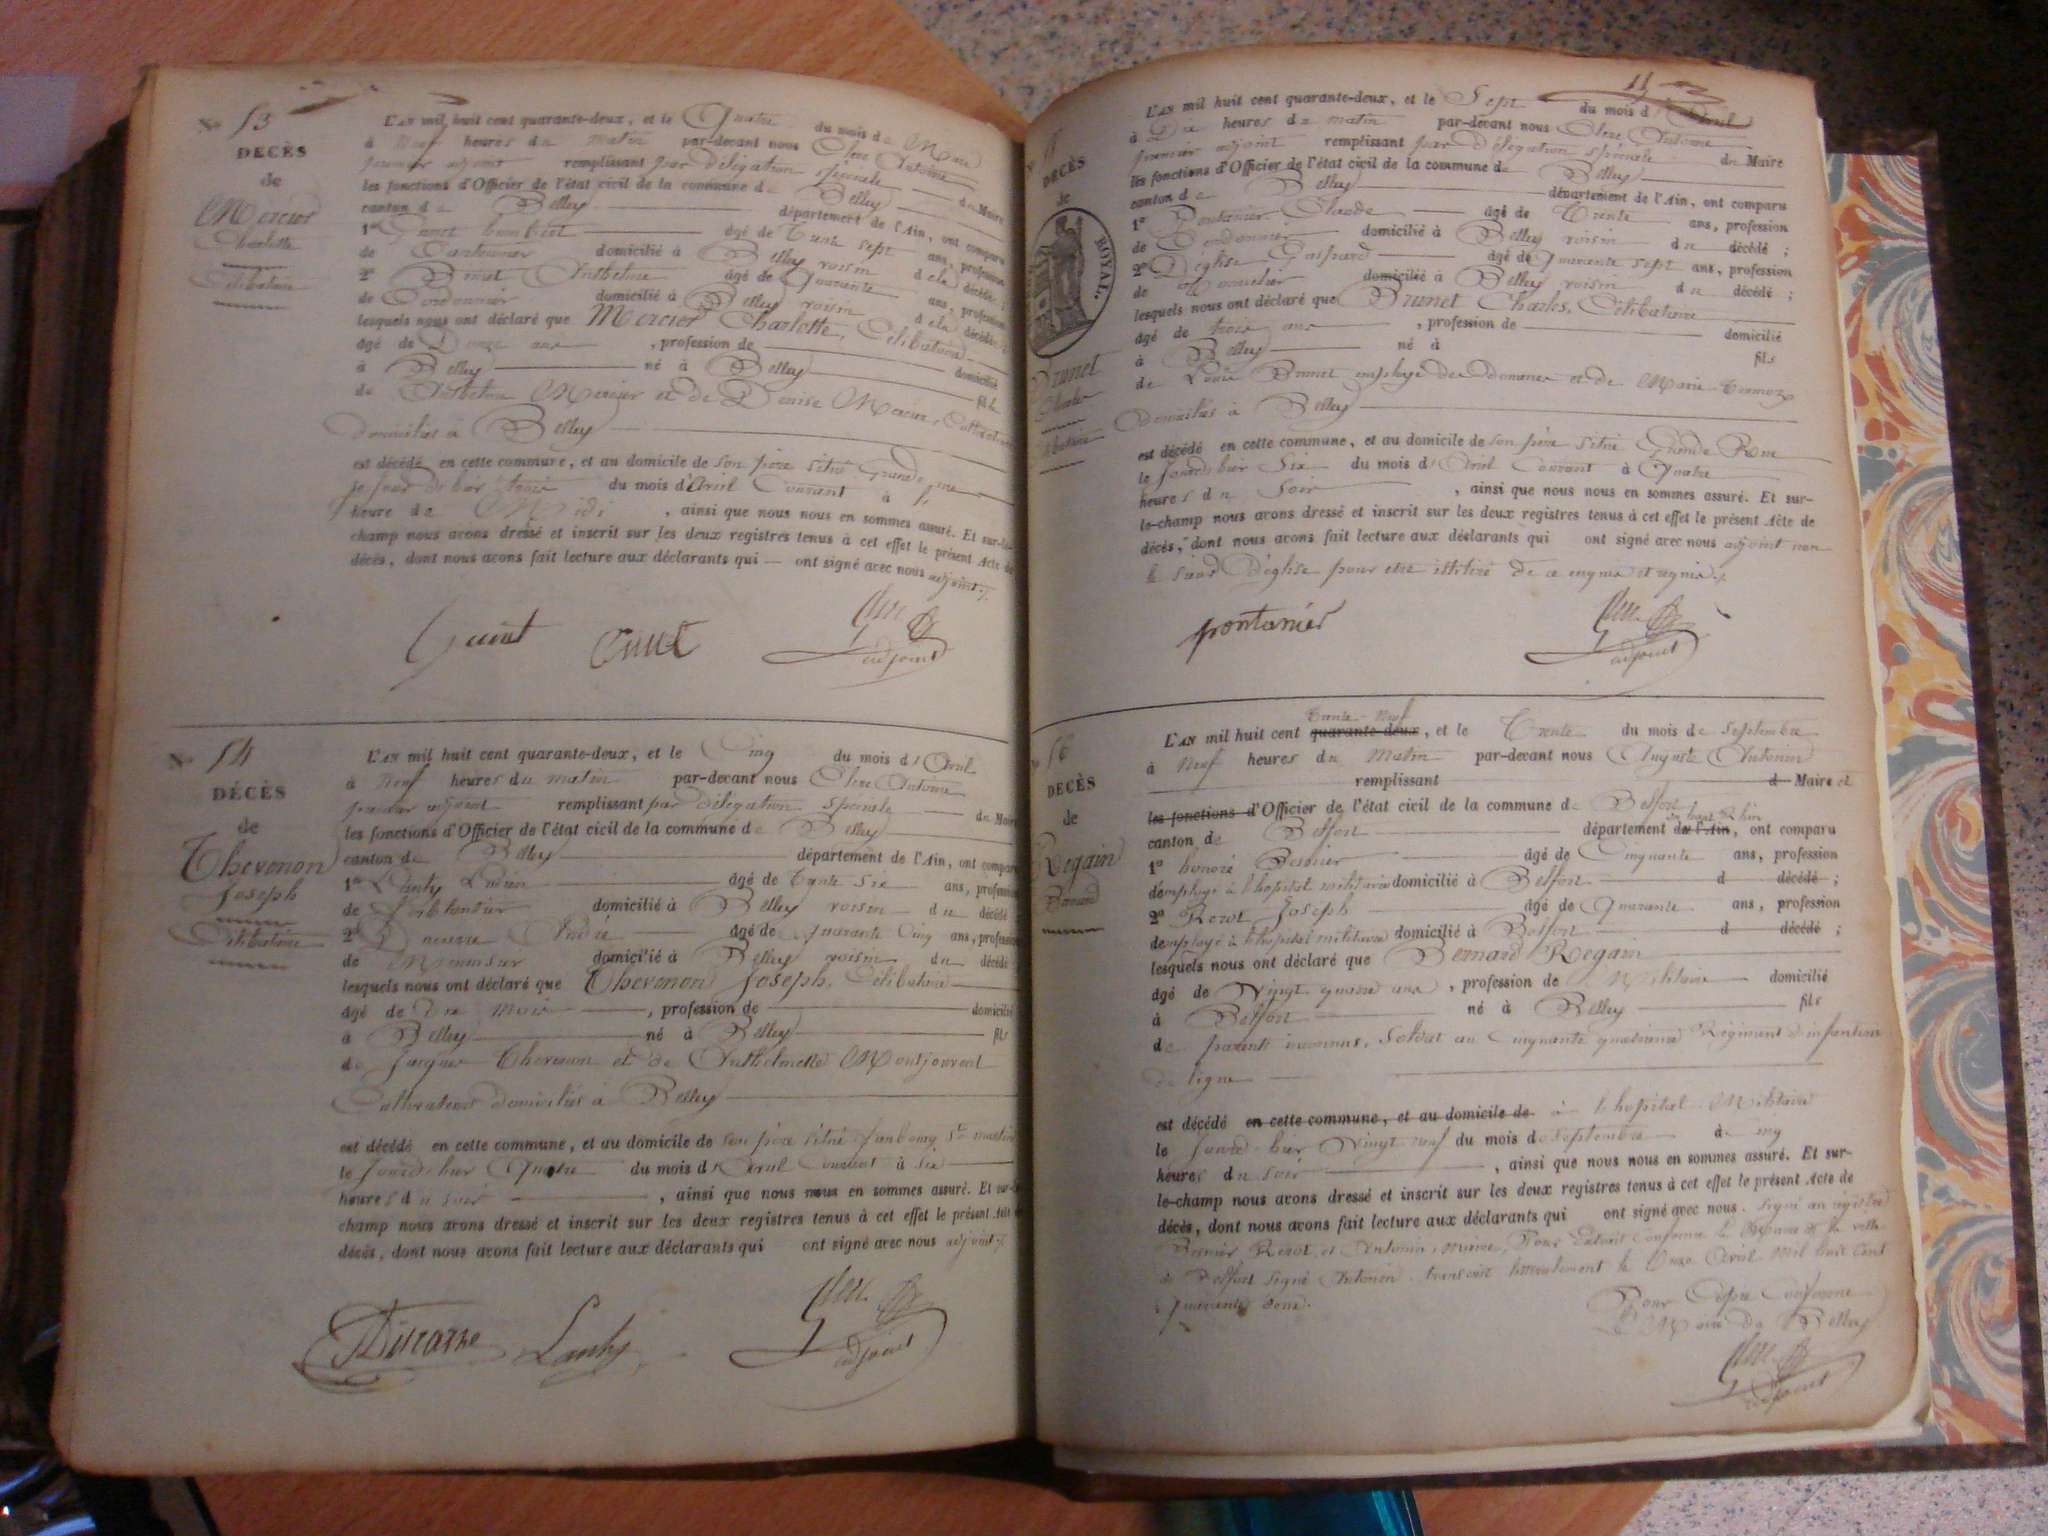 N° 53
DECÈS
de
Mercier
Charlotte
Célibataire
L'AN mil huit cent quarante-deux, et le Quatre du mois de
à neuf heures du matin par-devant nous Antoine
premier adjoint remplissant par délégation spéciale du Maire
les fonctions d'Officier de l'état civil de la commune de Belley
canton de Belley département de l'Ain, ont comparu
1° humbert âgé de Trente sept ans, profession
de domicilié à Belley voisin de la décédée ;
2° Anthelme âgé de Quarante ans, profession
de Cordonnier domicilié à Belley voisin de la décédée
lesquels nous ont déclaré que Mercier Charlotte, Célibataire
âgé de ans , profession de domicilié
à Belley né à Belley fille
de Anthelme Mercier et de Denise Mercier,
domiciliés à Belley
est décédé en cette commune, et au domicile de son père situé Grande rue
le jour d'hier trois du mois d'Avril Courant à
heure de Midi , ainsi que nous nous en sommes assuré. Et sur-le-
champ nous avons dressé et inscrit sur les deux registres tenus à cet effet le présent Acte de
décès, dont nous avons fait lecture aux déclarants qui — ont signé avec nous adjoint ./.
adjoint
N° 54
DÉCÈS
de
Thevenon
Joseph
Célibataire
L'AN mil huit cent quarante-deux, et le Cinq du mois d'Avril
à Neuf heures du matin par-devant nous Antoine
premier adjoint remplissant par délégation spéciale du Maire
les fonctions d'Officier de l'état civil de la commune de Belley
canton de Belley département de l'Ain, ont comparu
1° âgé de Trente six ans, profession
de Ferblantier domicilié à Belley voisin du décédé
2° André âgé de quarante Cinq ans, profession
de Menuisier domicilié à Belley voisin du décédé
lesquels nous ont déclaré que Thevenon Joseph, Célibataire
âgé de mois , profession de domicilié
à Belley né à Belley fils
de Jacques Thevenon et de Anthelmette Montjouvent
Cultivateurs domiciliés à Belley
est décédé en cette commune, et au domicile de son père situé faubourg St martin
le jour d'hier Quatre du mois d'Avril Courant à six
heures du soir , ainsi que nous nous en sommes assuré. Et sur-le-
champ nous avons dressé et inscrit sur les deux registres tenus à cet effet le présent Acte de
décès, dont nous avons fait lecture aux déclarants qui ont signé avec nous adjoint ./.
Lanty
adjoint
11
DECÈS
de
ROYAL.
Brunet
Charles
Célibataire
L'AN mil huit cent quarante-deux, et le Sept du mois d'Avril
à Dix heures du matin par-devant nous Antoine
premier adjoint remplissant par délégation spéciale du Maire
les fonctions d'Officier de l'état civil de la commune de Belley
canton de Belley département de l'Ain, ont comparu
1° Pontanier Claude âgé de Trente ans, profession
de Cordonnier domicilié à Belley voisin du décédé ;
2° Déglise Gaspard âgé de Quarante sept ans, profession
de domicilié à Belley voisin du décédé ;
lesquels nous ont déclaré que Brunet Charles, Célibataire
âgé de trois ans , profession de domicilié
à Belley né à fils
de Louis Brunet employé des Douanes et de Marie
domiciliés à Belley
est décédé en cette commune, et au domicile de son père situé Grande Rue
le jour d'hier Six du mois d'Avril Courant à Quatre
heures du Soir , ainsi que nous nous en sommes assuré. Et sur-
le-champ nous avons dressé et inscrit sur les deux registres tenus à cet effet le présent Acte de
décès, dont nous avons fait lecture aux déclarants qui ont signé avec nous adjoint non
le Sieur Déglise pour être illitéré de ce enquis et requis ./.
pontanier
adjoint
56
DECÈS
de
Regain
Bernard
L'AN mil huit cent quarante-deux Trente-Neuf, et le Trente du mois de Septembre
à Neuf heures du Matin par-devant nous Auguste Antonin
remplissant d Maire et
les fonctions d'Officier de l'état civil de la commune de Belfort
canton de Belfort département de l'Ain du haut Rhin, ont comparu
1° honoré âgé de Cinquante ans, profession
d'employé à l'hopital militaire domicilié à Belfort d décédé ;
2° Rerot Joseph âgé de Quarante ans, profession
d'employé à l'hopital militaire domicilié à Belfort d décédé ;
lesquels nous ont déclaré que Bernard Regain
âgé de Vingt quatre ans , profession de Militaire domicilié
à Belfort né à Belley fils
de parents inconnus, Soldat au Cinquante quatrième Régiment d'infanterie
de ligne
est décédé en cette commune, et au domicile de à l'hopital Militaire
le jourd'hier Vingt neuf du mois de Septembre à cinq
heures du soir , ainsi que nous nous en sommes assuré. Et sur-
le-champ nous avons dressé et inscrit sur les deux registres tenus à cet effet le présent Acte de
décès, dont nous avons fait lecture aux déclarants qui ont signé avec nous. Signé au registre
Rerot et Antonin, Maire, Pour Extrait Conforme le Maire de la ville
de Belfort Signé Antonin. transcrit littéralement le Onze Avril Mil huit Cent
Quarante deux.
Pour Copie Conforme
Le Maire de Belley
adjoint